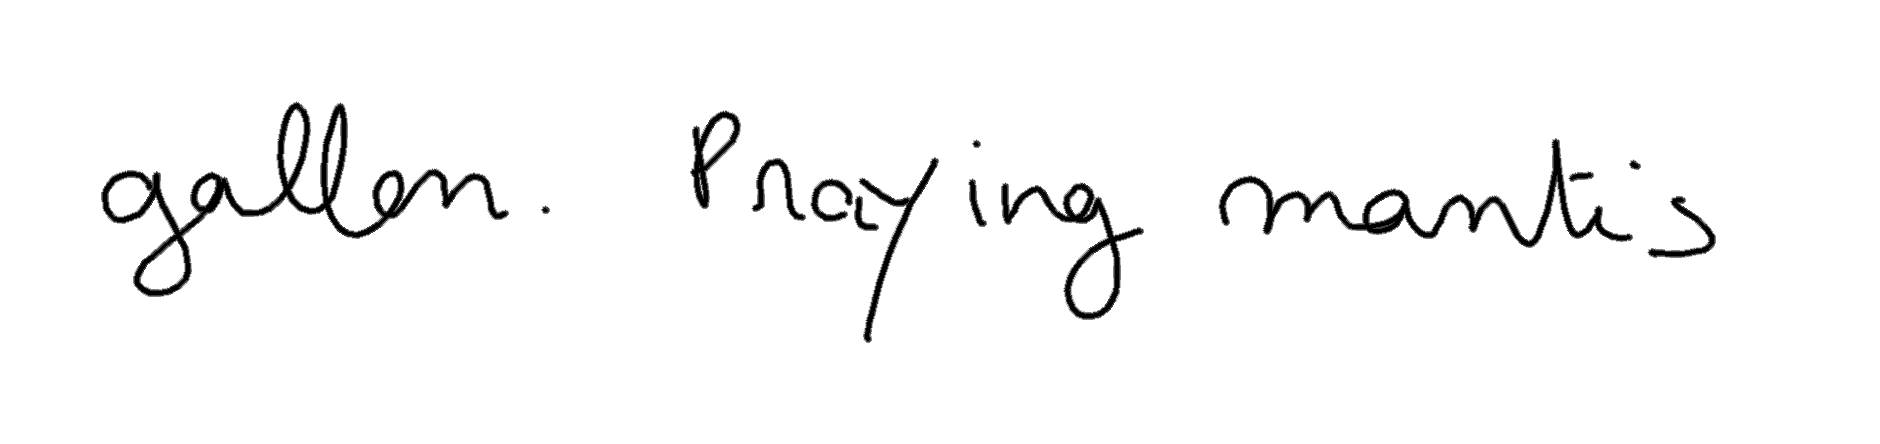 gallen. Praying mantis